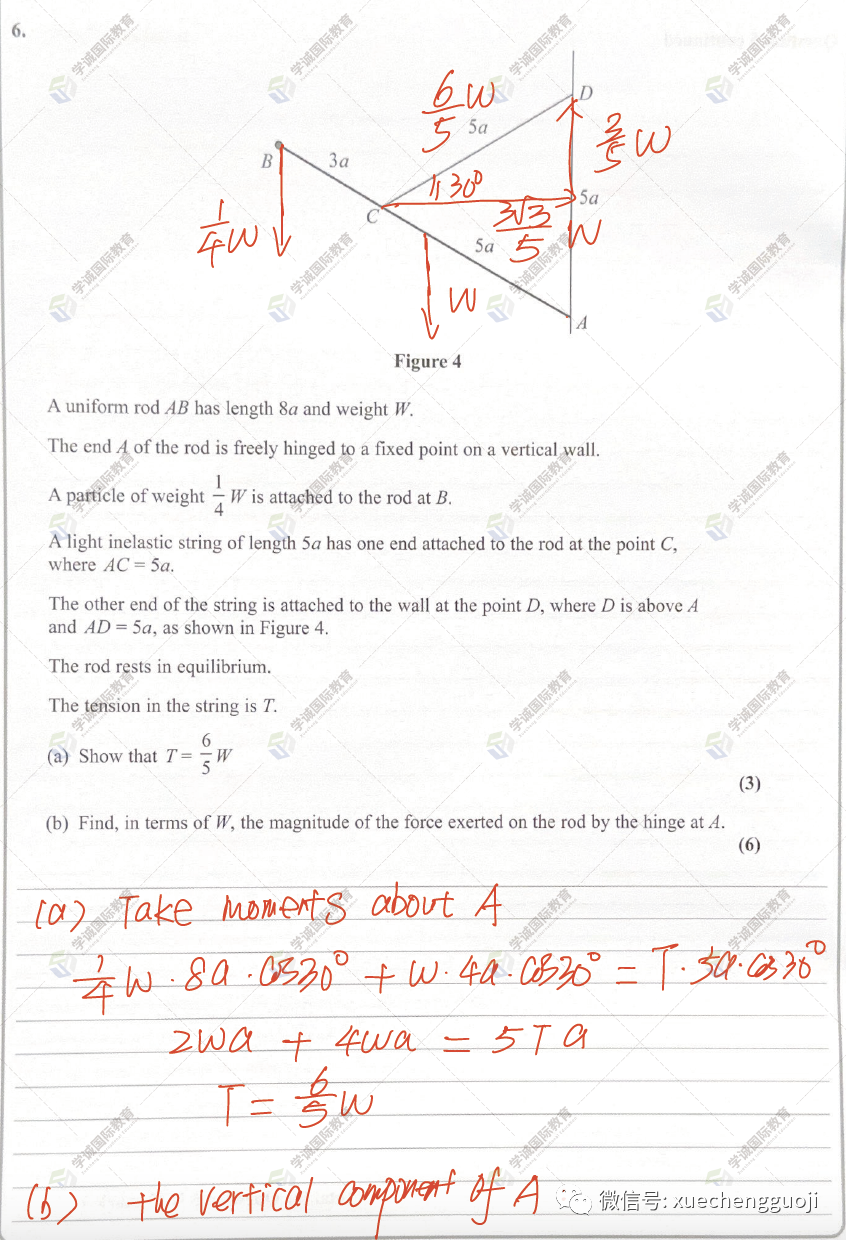 6.
B
3a
C
5a
D
5a
5a
A
6/5 W
30°
3/5 W
3√3/5 W
1/4 W
W
Figure 4
A uniform rod AB has length 8a and weight W.
The end A of the rod is freely hinged to a fixed point on a vertical wall.
A particle of weight 1/4 W is attached to the rod at B.
A light inelastic string of length 5a has one end attached to the rod at the point C,
where AC = 5a.
The other end of the string is attached to the wall at the point D, where D is above A
and AD = 5a, as shown in Figure 4.
The rod rests in equilibrium.
The tension in the string is T.
(a) Show that T = 6/5 W
(3)
(b) Find, in terms of W, the magnitude of the force exerted on the rod by the hinge at A.
(6)
(a) Take moments about A
1/4 W · 8a · cos30° + W · 4a · cos30° = T · 5a · cos30°
2Wa + 4Wa = 5Ta
T = 6/5 W
(b) the vertical component of A
微信号: xuechengguoji
学诚国际教育